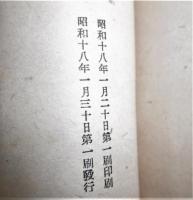 昭和十八年一月二十日第一刷印刷
昭和十八年一月三十日第一刷發行